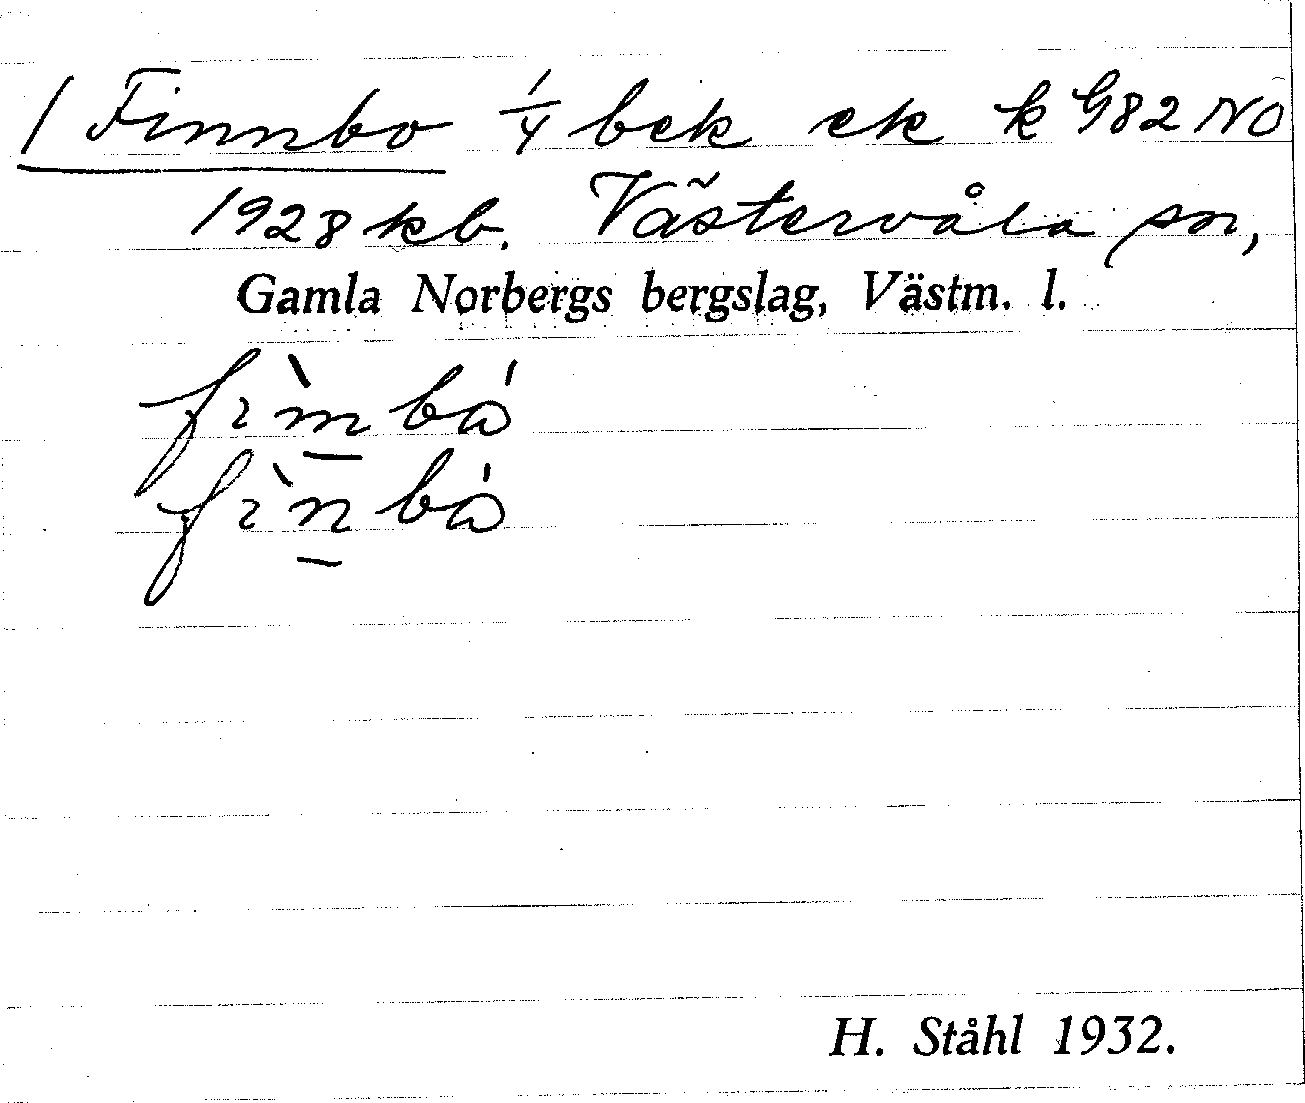 / Finnbo 1/4 bek ek k G82 NO
1928 kb. Västervåla sn,
Gamla Norbergs bergslag, Västm. l.
fìmbå
fìnbå
H. Ståhl 1932.